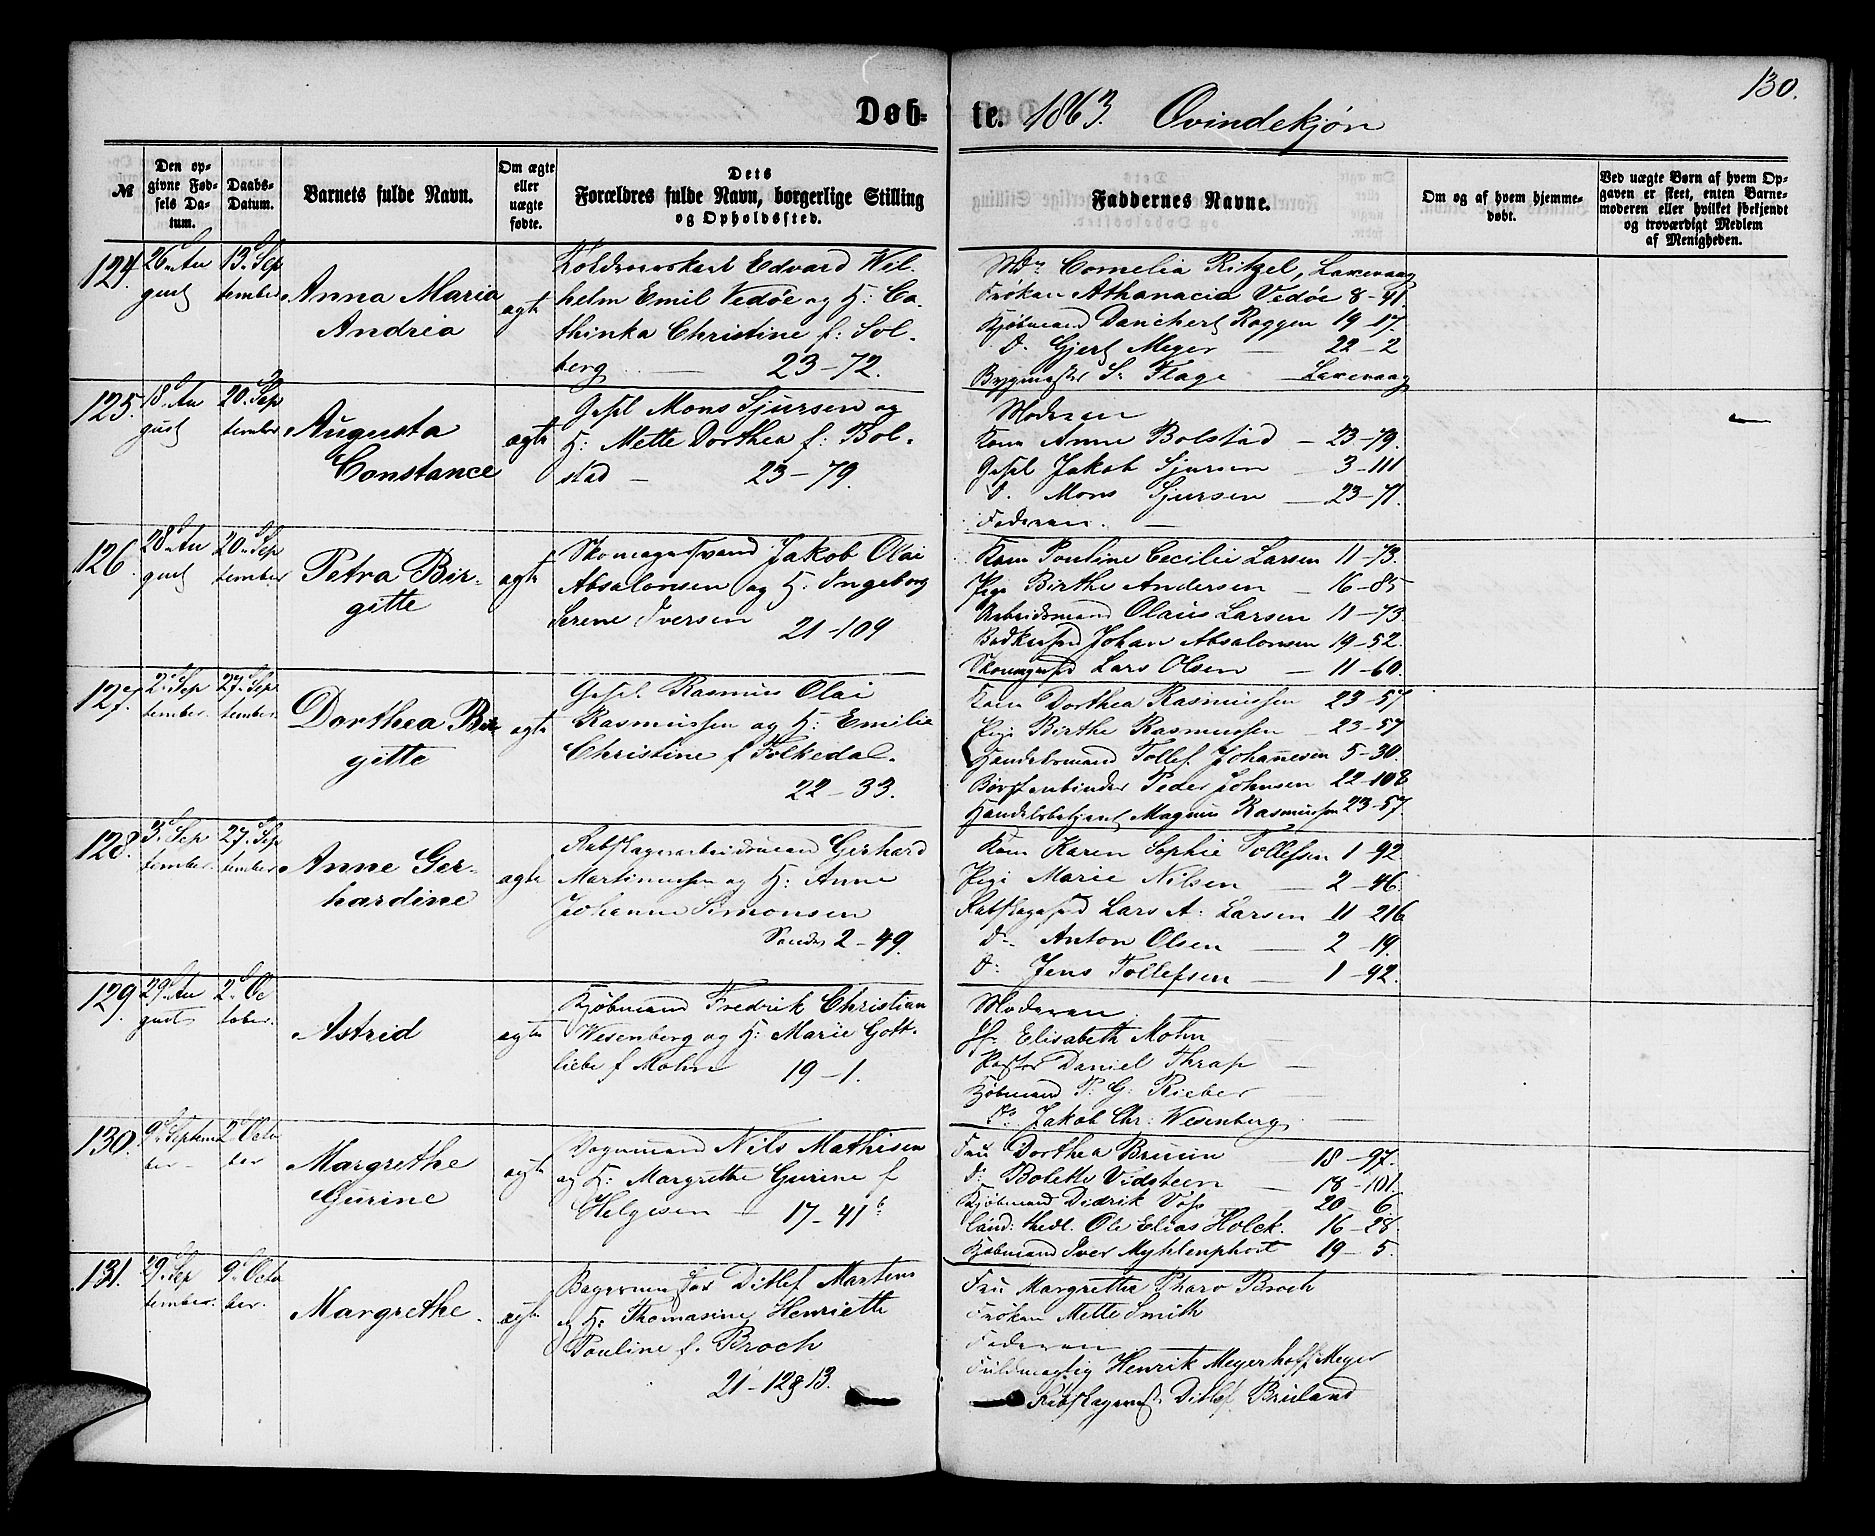 130.
Døb- te. 1863. Qvindekjøn
№
Den opgivne Fødsels Datum.
Daabs-Datum.
Barnets fulde Navn.
Om ægte eller uægte fødte.
Dets Forældres fulde Navn, borgerlige Stilling og Opholdssted.
Faddernes Navne.
Om og af hvem hjemmedøbt.
Ved uægte Børn af hvem Opgaven er skeet, enten Barnemoderen eller hvilket bekjendt og troværdigt Medlem af Menigheden.
124. 26 August
13 September
Anna Maria
Andrea
ægte
Edvard Wil-
helm Emil Vedøe og H: Ca-
thinka Christine f: Sol-
berg — 23-72.
Md: Cornelia Ritzel, Laxevaag
Frøken Athanacia Vedøe 8-41.
Kjøbmand Danchert Roggen 19-17.
D. Gjert Meyer — 22-2
Bygmester S: Flage — Laxevaag
125. 18 August
20 September
Augusta
Constance
ægte
Gesel Mons Sjursen og
H. Mette Dorthea f: Bol-
stad — 23-79.
Moderen
Kone Anne Bolstad — 23-79.
Gesel Jakob Sjursen — 3-111
D. Mons Sjursen — 23-71.
Faderen. —
126. 28 August
20 September
Petra Bir-
gitte
ægte
Skomagersvend Jakob Olai
Absalonsen og H. Ingeborg
Serene Iversen 21-109
Kone Pauline Cecilie Larsen 11-73.
Pige Birthe Andersen — 16-85
Arbeidsmand Olaus Larsen 11-73
Johan Absalonsen 19-52.
Lars Olsen — 11-60.
127. 2 September
27 September
Dorthea Bir-
gitte
ægte
Gesel Rasmus Olai
Rasmussen og H: Emilie
Christine f Folkedal.
22-33.
Kone Dorthea Rasmussen 23-57
Pige Birthe Rasmussen — 23-57
Handelsmand Tollef Johannesen 5-30.
Børstenbinder Peder Johnsen 22-108
Handelsbetjent Magnus Rasmussen 23-57.
128. 3 September
27 September
Anne Ger-
hardine
ægte
Rebslagerarbeidsmand Gerhard
Martinussen og H: Anne
Johanne Simonsen
2-49.
Kone Karen Sophie Tollefsen 1-92
Pige Marie Nilsen — 2-46.
Lars A: Larsen 11-216
Do Anton Olsen — 2-19.
D: Jens Tollefsen — 1-92.
129. 29 August
2 October
Astrid
ægte
Kjøbmand Fredrik Christian
Wesenberg og H: Marie Gott-
liebe f Mohn 19-1.
Moderen.
Elisabeth Mohn —
Pastor Daniel Thrap —
Kjøbmand P. G: Rieber —
Do Jakob Chr: Wesenberg —
130. 9 September
2 October
Margrethe
Gurine
ægte
Vognmand Nils Mathisen
og H: Margrethe Gurine f
Helgesen — 17-41b
Fru Dorthea Bruun — 18-97.
D. Bolette Vidsteen — 18-101.
Kjøbmand Didrik Voss — 20-6
Cand: theol. Ole Elias Holck. 16-28.
Kjøbmand Iver Myhlenphort 19-5.
131. 29 September
9 October
Margrethe.
ægte
Bagermester Ditlef Martens
og H: Thomasine Henriette
Pauline f. Broch
21-12 & 13.
Fru Margretha Pharo Broch
Frøken Mette Smith
Faderen
Fuldmægtig Henrik Meyerhoff Meyer
Ditlef Bruland